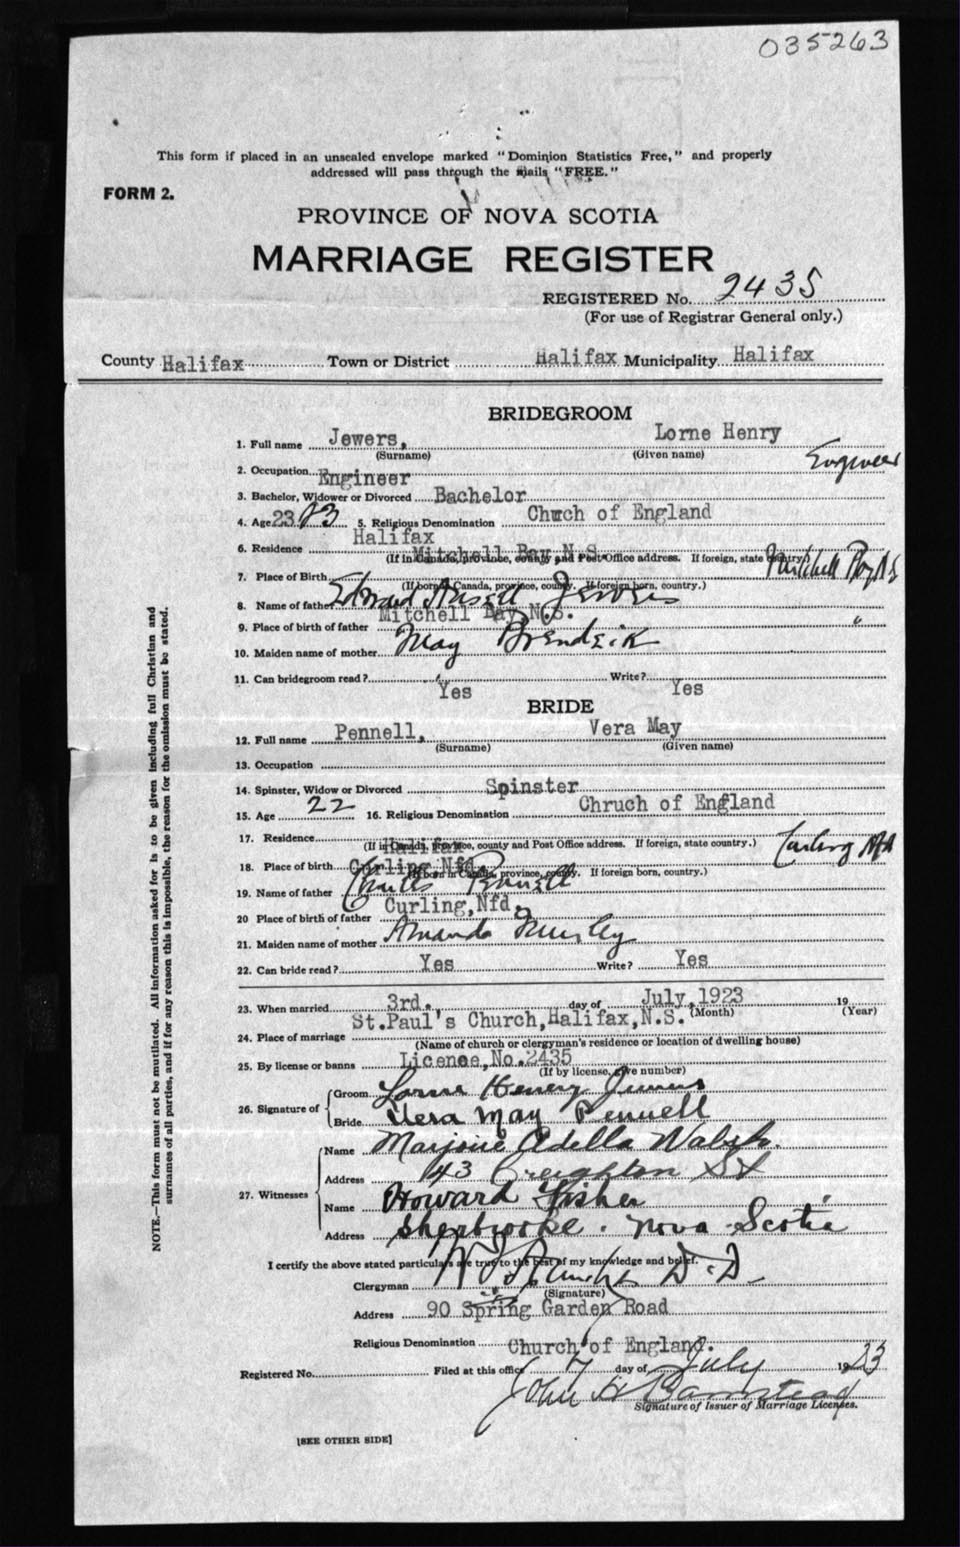 035263
This form if placed in an unsealed envelope marked "Dominion Statistics Free," and properly
addressed will pass through the mails "FREE."
FORM 2.
PROVINCE OF NOVA SCOTIA
MARRIAGE REGISTER
REGISTERED No. 2435
(For use of Registrar General only.)
County Halifax Town or District Halifax Municipality Halifax
BRIDEGROOM
1. Full name Jewers, Lorne Henry
(Surname) (Given name)
Engineer
2. Occupation Engineer
3. Bachelor, Widower or Divorced Bachelor
4. Age 23 23 5. Religious Denomination Church of England
6. Residence Halifax
(If in Canada, province, county and Post Office address. If foreign, state country.)
7. Place of Birth Mitchell Bay N.S. Mitchell Bay N S
(If born in Canada, province, county. If foreign born, country.)
8. Name of father Edward Jewers
9. Place of birth of father Mitchell Bay N.S. "
10. Maiden name of mother May
11. Can bridegroom read? Yes Write? Yes
BRIDE
12. Full name Pennell, Vera May
(Surname) (Given name)
13. Occupation
14. Spinster, Widow or Divorced Spinster
15. Age 22 16. Religious Denomination Chruch of England
17. Residence Halifax
(If in Canada, province, county and Post Office address. If foreign, state country.)
18. Place of birth Curling Nfd. Curling Nfd
(If born in Canada, province, county. If foreign born, country.)
19. Name of father Charles Pennell
20 Place of birth of father Curling, Nfd.
21. Maiden name of mother Amanda
22. Can bride read? Yes Write? Yes
23. When married 3rd. day of July, 1923 19
(Month) (Year)
24. Place of marriage St.Paul's Church, Halifax, N.S.
(Name of church or clergyman's residence or location of dwelling house)
25. By license or banns License, No. 2435
(If by license, give number)
26. Signature of Groom Lorne Henry Jewers
Bride Vera May Pennell
27. Witnesses
Name Marjorie Adella Walsh
Address 43 Creighton St
Name Howard Fisher
Address Sherbrooke. Nova Scotia
I certify the above stated particulars are true to the best of my knowledge and belief.
Clergyman D.D.
(Signature)
Address 90 Spring Garden Road
Religious Denomination Church of England.
Registered No. Filed at this office 7 day of July 1923
John H Barnstead
Signature of Issuer of Marriage Licenses.
[SEE OTHER SIDE]
NOTE.—This form must not be mutilated. All information asked for is to be given including full Christian and
surnames of all parties, and if for any reason this is impossible, the reason for the omission must be stated.